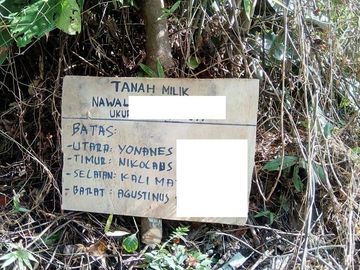 TANAH MILIK
NAWAL
UKUR
BATAS:
-UTARA: YONANES
-TIMUR: NIKOLAUS
-SELATAN: KALI MA
-BARAT: AGUSTINUS